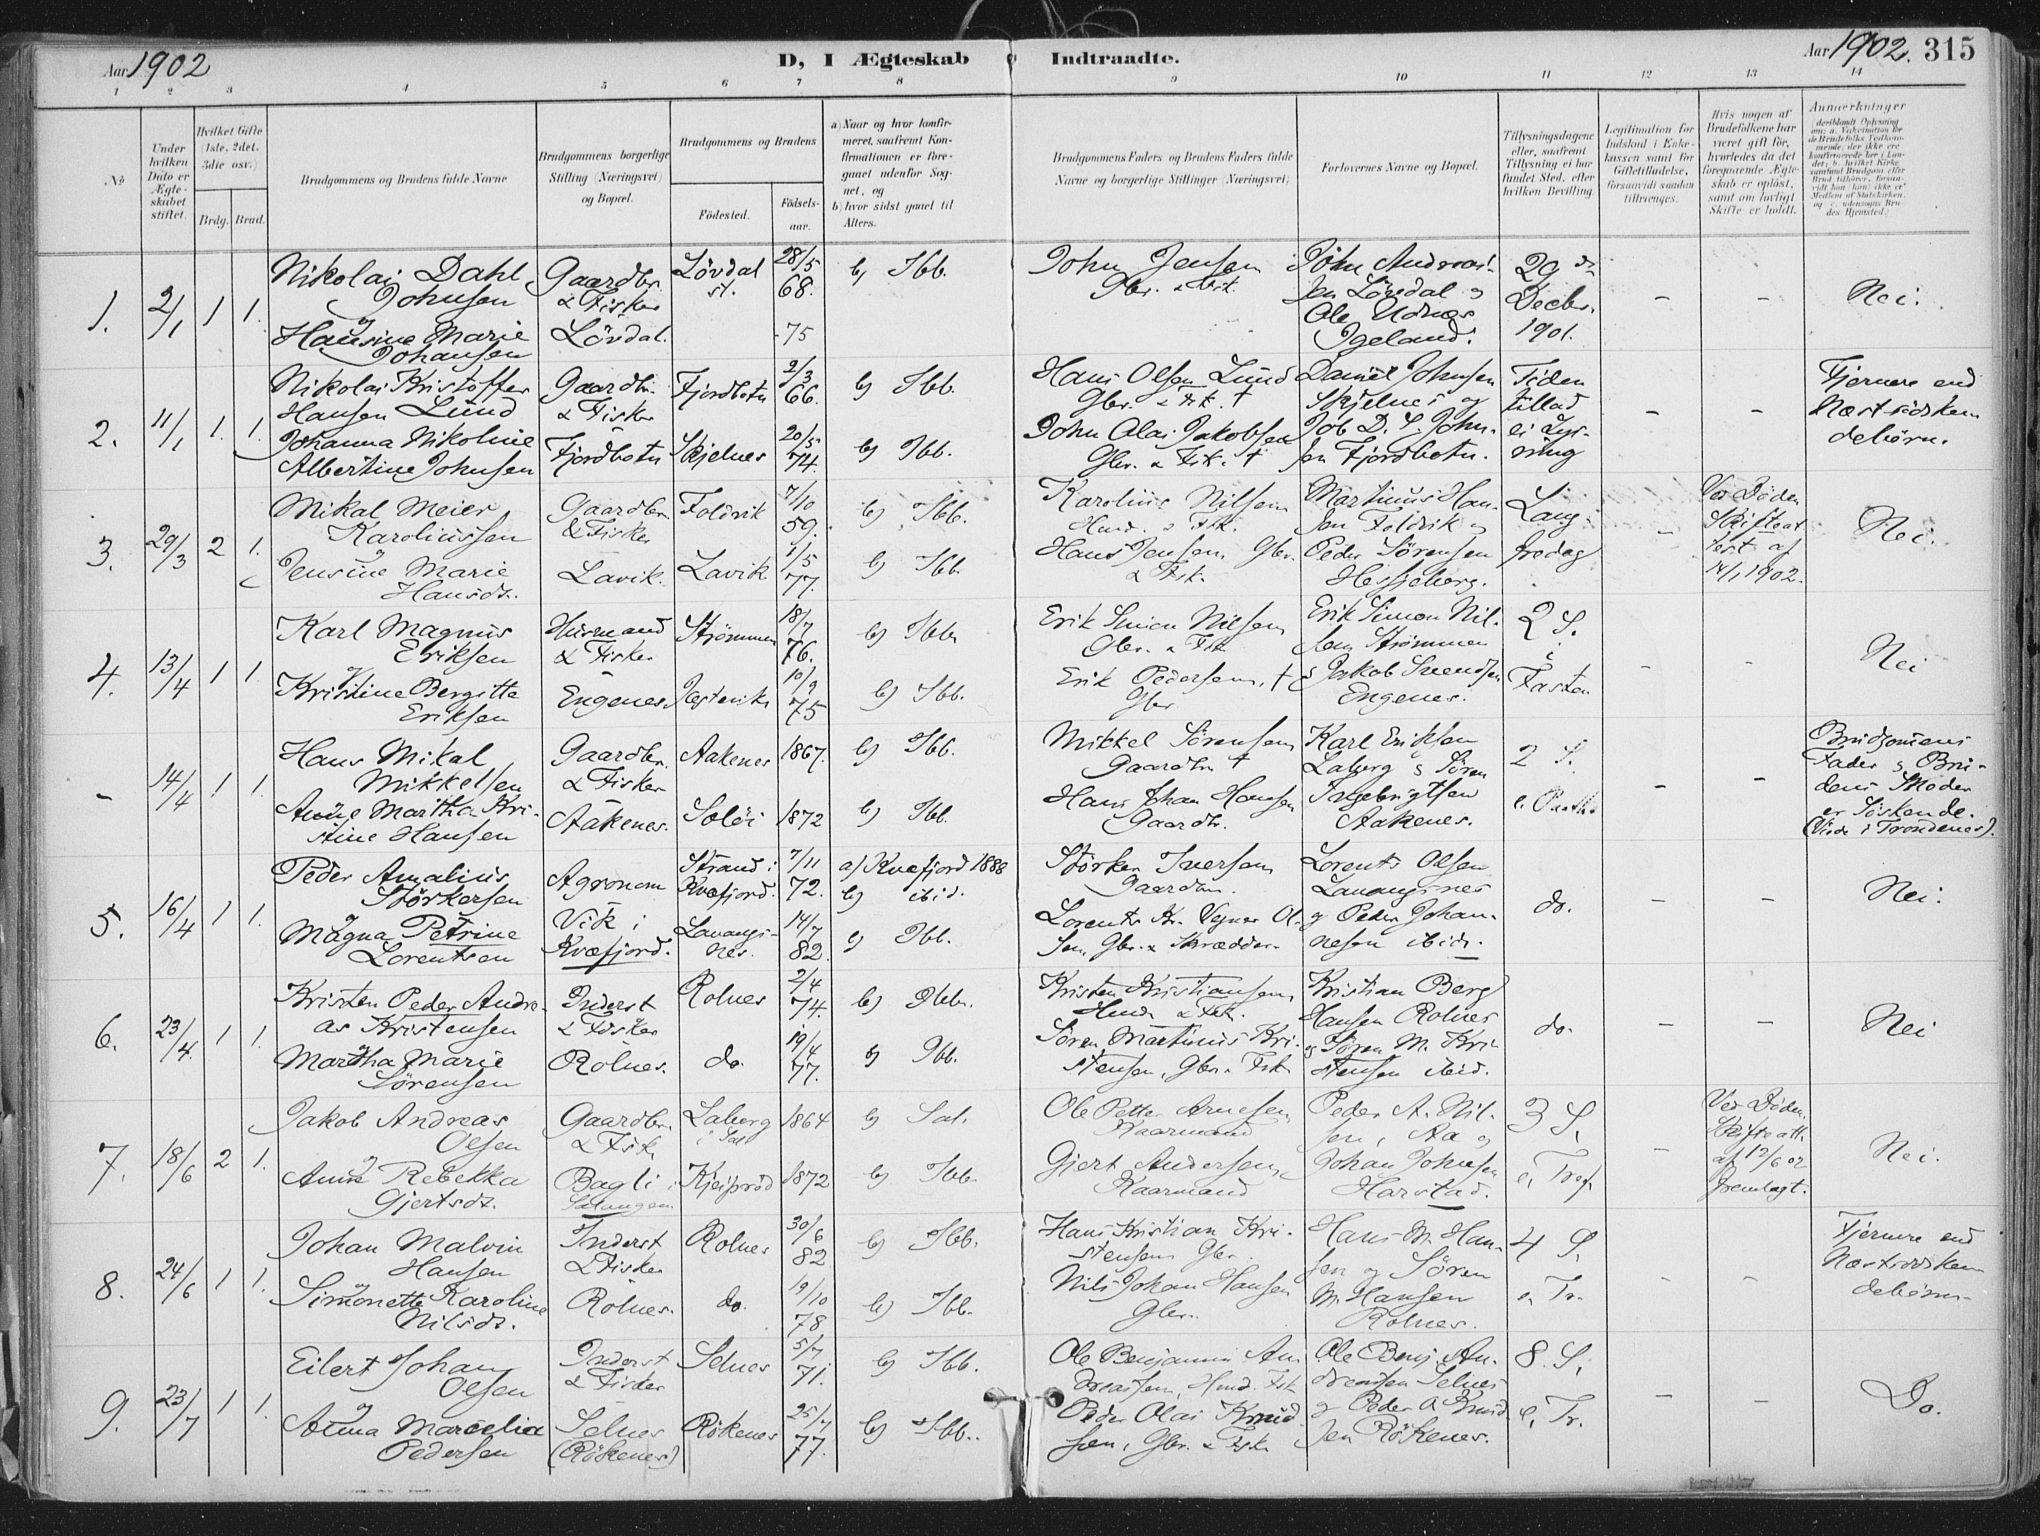 Aar 1902
D, I Ægteskab Indtraadte.
Aar 1902. 315
1 2 3 4 5 6 7 8 9 10 11 12 13 14
No
Under hvilken Dato er Ægteskabet stiftet.
Hvilket Gifte (1ste, 2det, 3die osv.)
Brdg. Brud.
Brudgommens og Brudens fulde Navne
Brudgommens borgerlige Stilling (Næringsvei) og Bopæl.
Brudgommens og Brudens
Födested.
Födsels-aar.
a) Naar og hvor konfirmeret, saafremt Konfirmationen er foregaaet udenfor Sognet, og
b) hvor sidst gaaet til Alters.
Brudgommens Faders og Brudens Faders fulde Navne og borgerlige Stillinger (Næringsvei)
Forlovernes Navne og Bopæl.
Tillysningsdagene eller, saafremt Tillysning ei har fundet Sted, efter hvilken Bevilling.
Legitimation for Indskud i Enkekassen samt for Giftetilladelse, forsaavidt saadan tiltrænges.
Hvis nogen af Brudefolkene har været gift før, hvorledes da det foregaaende Ægteskab er opløst, samt om lovligt Skifte er holdt.
Anmærkninger
1. 2/1 1 1.
Nikolai Dahl Johnsen
Gaardbr. & Fisker
Lövdal st.
28/5 68.
b) Ibb.
John Jensen
Gbr. & Fisk.
John Andreas-
sen Lövdal og
Ole Udnes
Igeland.
29 de
Decbr.
1901.
–
–
Nei.
Hansine Marie Johansen
Lövdal.
-75
2. 11/1 1. 1.
Nikolai Kristoffer
Hansen Lund
Gaardbr. & Fisker
Fjordbotn
2/3 66.
b) Ibb.
Hans Olsen Lund
Gbr. & Fisk. †
Daniel Johnsen
Skjelnes og
Job D. S. John-
sen Fjordbotn.
Tiden
tillad
ei Lys-
ning
–
–
Fjernere end
Næstsødsken
debörn.
Johanna Nikoline
Albertine Johnsen
Fjordbotn
Skjelnes
20/5 74.
b) Ibb.
John Olai Jakobsen
Gbr. & Fisk. †
3. 29/3 2 1.
Mikal Meier
Karoliussen
Gaardbr. & Fisker
Foldvik
7/10 59.
b) Ibb.
Karolius Nilsen
Martinus Han-
sen Foldvik og
Peder Sørensen
Hessjeberg.
Lang-
fredag
–
Ved Döden
Skifteat
test af
14/1 1902.
Nei.
Jensine Marie
Hansdt.
Lavik.
Lavik
1/5 77.
b) Ibb.
Hans Jensen Gbr.
& Fisk.
4. 13/4 1 1.
Karl Magnus
Eriksen
Husmand & Fisker
Strömmen
18/7 76.
b) Ibb.
Erik Simon Nilsen
Gbr. & Fisk
Erik Simon Nil-
sen Strömmen
& Jakob Svendsen
Engenes.
2 S.
i
Fasten
–
–
Nei
Kristine Bergitte
Eriksen
Engenes
10/9 75
b) Ibb.
Erik Pedersen †
Gbr
– 14/4 1 1.
Hans Mikal
Mikkelsen
Gaardbr. & Fisker
Aakenes
1867.
b) Ibb.
Mikkel Sörensen
Gaardbr. †
Karl Eriksen
Laberg & Sören
Ingebrigtsen
Aakenes.
2 S.
e. Paaske
–
–
Brudgomens
Fader og Bru-
dens Moder
er Söskende.
(Viede i Trondenes).
Anne Martha Kri-
stine Hansen
Aakenes.
Solöi
1872
b) Ibb.
Hans Johan Hansen
Gaardbr.
5. 16/4 1 1.
Peder Amalius
Störkersen
Agronom
Strand i
Kvæfjord.
7/11 72.
a) Kvæfjord 1888
b) ibid.
Störker Iversen
Gaardm.
Lorents Olsen
Lavangsnes
og Peder Johan-
nesen ibid.
do.
–
–
Nei.
Magna Petrine
Lorentsen
Vik i
Kvæfjord.
Lavangs-
nes.
14/7 82.
b) Ibb.
Lorents Kr. Vegner Ol-
sen, Gbr. & Skrædder.
6. 23/4. 1 1.
Kristen Peder Andre-
as Kristensen
Inderst & Fisker
Rolnes
2/4 74
b) Ibb.
Kristen Kristiansen
Husm. & Fisk.
Kristian Berg
Hansen Rolnes
og Sören M. Kri-
stensen ibid.
do.
–
–
Nei
Martha Marie
Sørensen
Rolnes.
do.
19/4 77.
b) Ibb.
Sören Martinus Kri-
stensen, Gbr. & Fisk
7. 18/6 2 1.
Jakob Andreas
Olsen
Gaardbr. & Fisk.
Laberg
i Sal
1864
b) Sal.
Ole Petter Arnesen
Kaarmand
Peder A. Nil-
sen, Aa og
Johan Johnsen
Harstad.
3 S.
e. Tref.
–
Ved Döden.
Skifteatt.
af 12/6 02
fremlagt.
Nei.
Anne Rebekka
Gjertsdt.
Bagli i
Salangen.
1872
b) Ibb.
Gjert Andersen
Kaarmand
8. 24/6 1 1.
Johan Malvin
Hansen
Inderst & Fisker
Rolnes
30/6 82
b) Ibb.
Hans Kristian Kri-
stensen Gbr.
Hans M. Han-
sen og Sören
M. Hansen
Rolnes.
4 S.
e. Tr.
–
–
Fjernere end
Næstsödsken
debörn.
Simonette Karoline
Nilsdt.
Rolnes.
do.
19/10 78
b) Ibb.
Nils Johan Hansen
Gbr.
9. 23/7 1 1.
Eilert Johan
Olsen
Inderst & Fisker
Selnes
5/7 71.
b) Ibb.
Ole Benjamin An
dreassen, Husm. Fisk
Ole Benj. An-
dreassen Selnes
og Peder O Knud
sen Rökenes.
8. S.
e. Tr.
–
–
Do.
Anna Marcelia
Pedersen
Selnes
(Rökenes)
Rökenes
25/7 77.
b) Ibb.
Peder Olai Knud
sen, Gbr. & Fisk